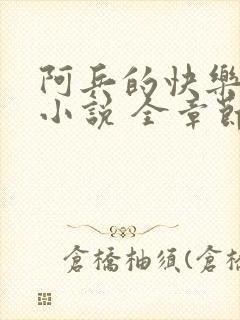 阿兵的快樂
小說 全章節
倉橋柚須(倉橋